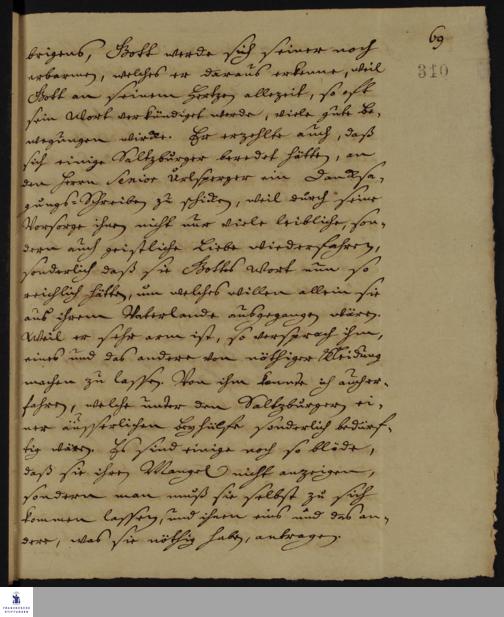 69
310
brigens, Gott werde sich seiner noch
erbarmen, welches er daraus erkenne, weil
Gott an seinem Hertzen allezeit, so oft
sein Wort verkündiget werde, viele gute Be-
wegungen wirke. Er erzehlte auch, daß
sich einige Saltzburger beredet hätten, an
den Herrn Senior Urlsperger ein Danksa-
gungs-Schreiben zu schicken, weil durch seine
Vorsorge ihnen nicht nur viele leibliche, son-
dern auch geistliche Liebe wiederfahren,
sonderlich daß sie Gottes Wort nun so
reichlich hätten, um welches willen allein sie
aus ihrem Vaterlande ausgegangen wären.
Weil er sehr arm ist, so versprach ihm,
eines und das andere von nöthiger Kleidung
machen zu lassen. Von ihm konnte ich auch er-
fahren, welche unter den Saltzburgern ei-
ner äusserlichen Beyhülfe sonderlich bedürf-
tig wären. Es sind einige noch so blöde,
daß sie ihren Mangel nicht anzeigen,
sondern man muß sie selbst zu sich
kommen lassen, und ihnen eins und das an-
dere, was sie nöthig haben, antragen.
FRANCKESCHE
STIFTUNGEN